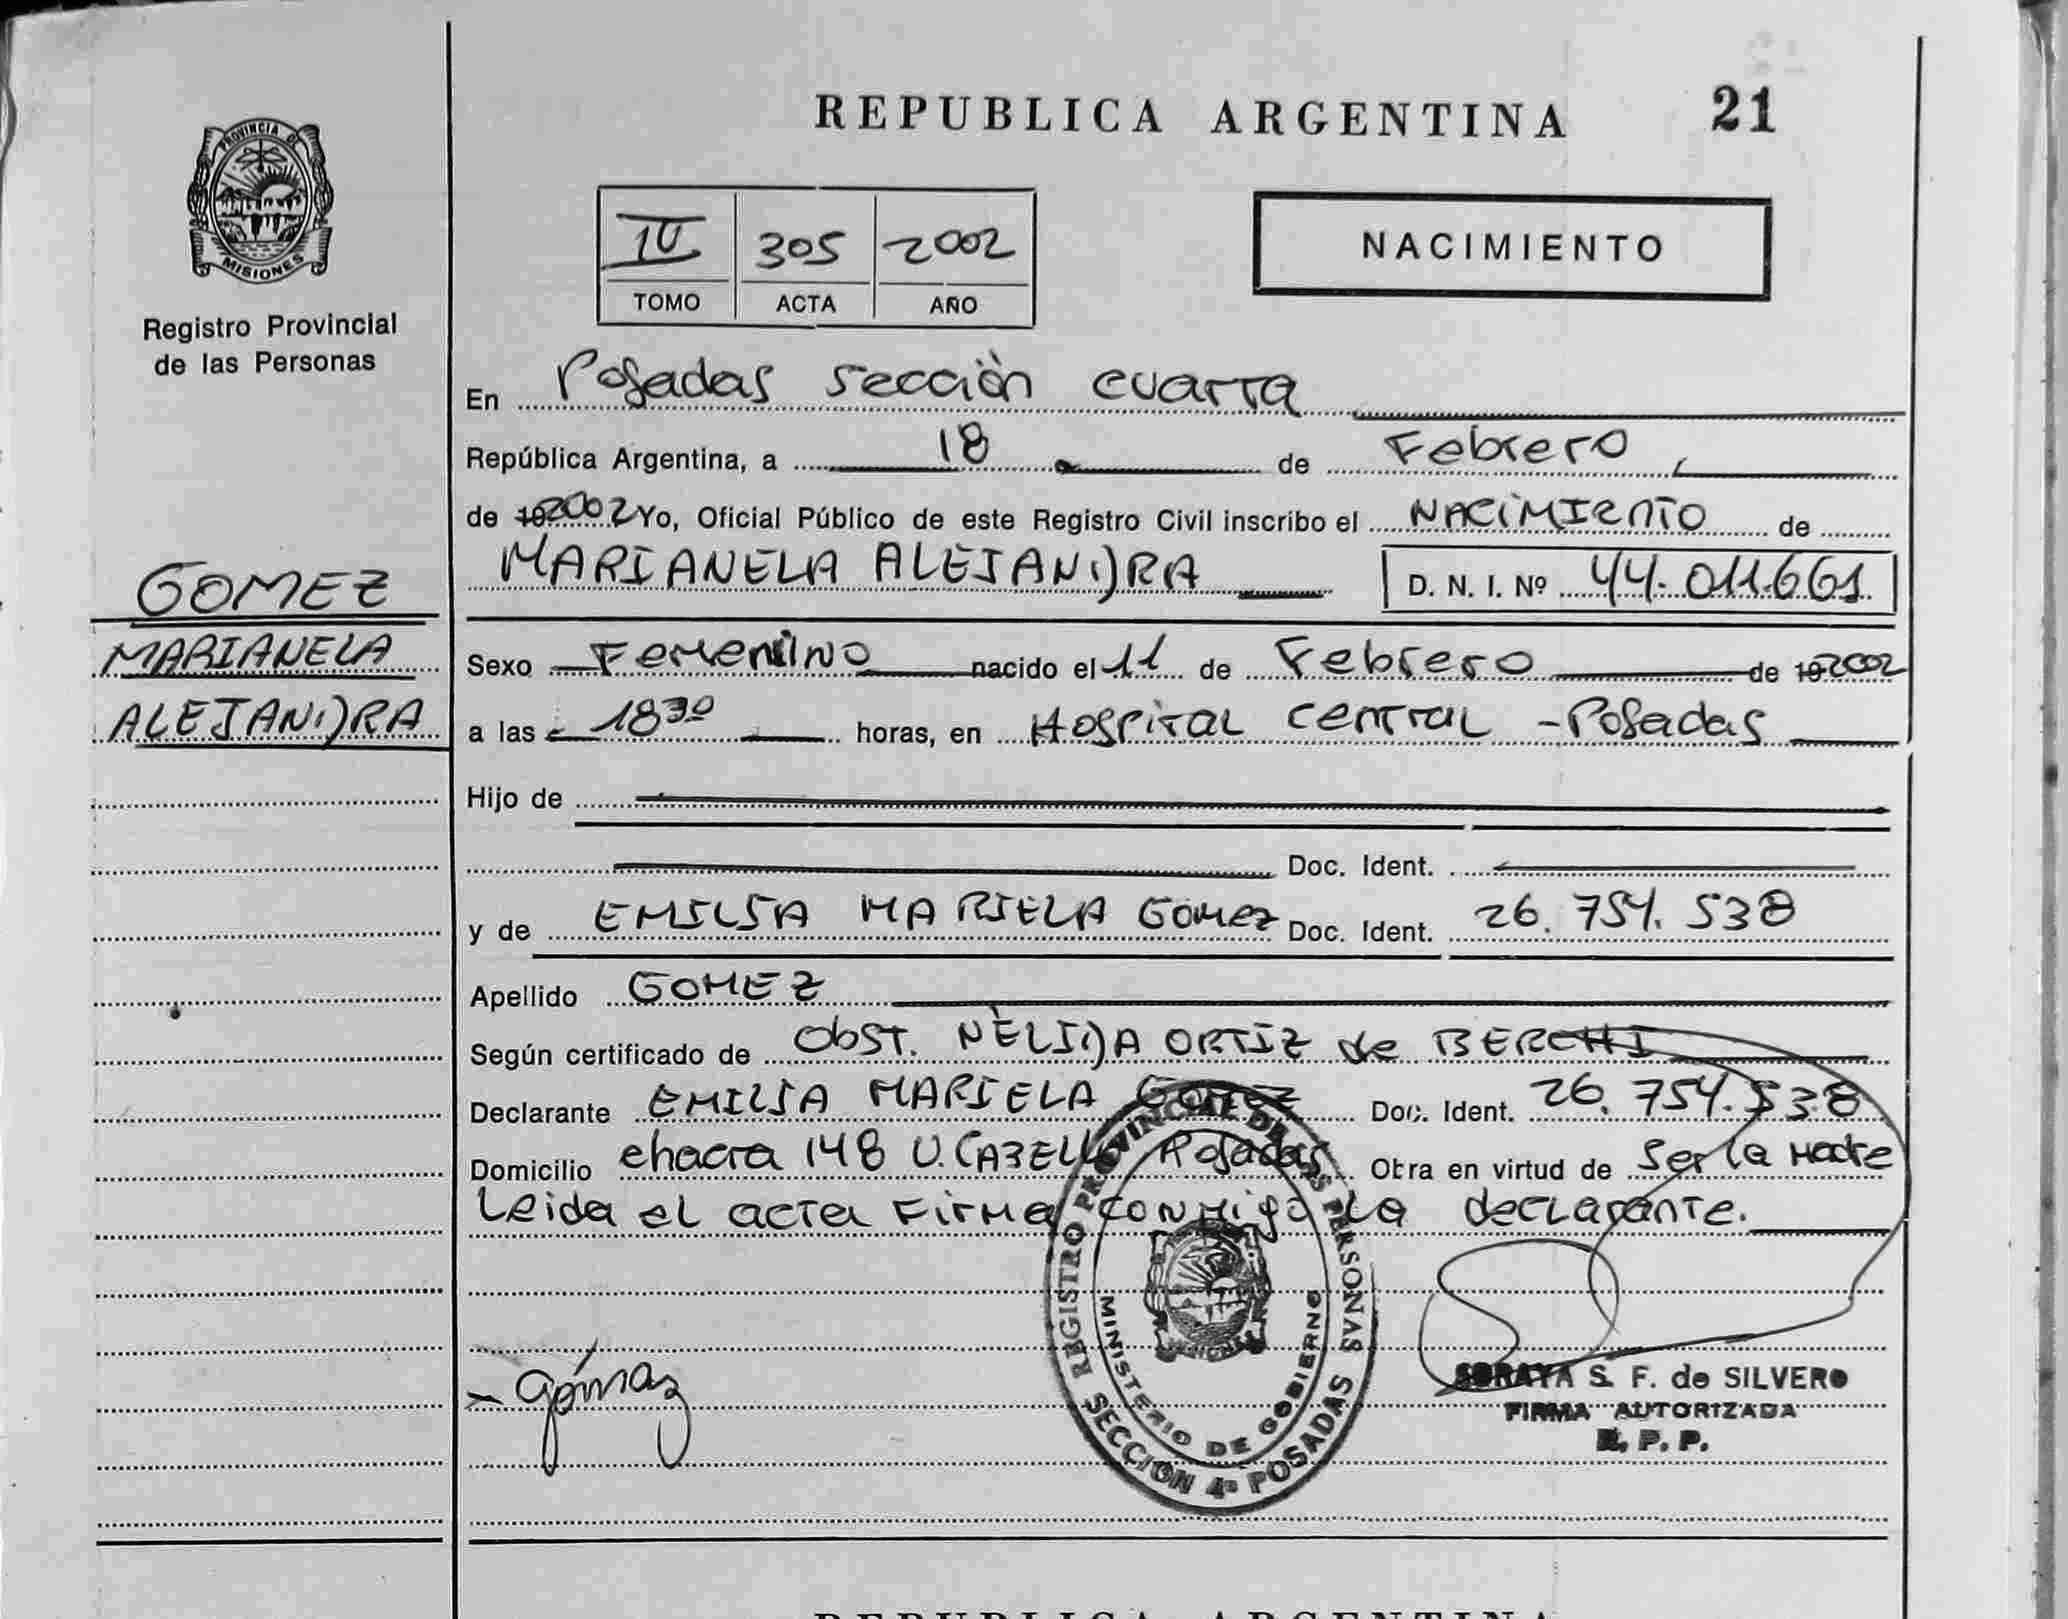 REPUBLICA ARGENTINA 21
PROVINCIA DE
MISIONES
Registro Provincial
de las Personas
IV 305 2002
TOMO ACTA AÑO
NACIMIENTO
En Posadas sección cuarta
República Argentina, a 18 de Febrero
de 192002 Yo, Oficial Público de este Registro Civil inscribo el NACIMIENTO de
MARIANELA ALEJANDRA D. N. I. Nº 44.011.661
GOMEZ
MARIANELA
ALEJANDRA
Sexo Femenino nacido el 11 de Febrero de 192002
a las 18 30 horas, en Hospital Central - Posadas
Hijo de
Doc. Ident.
y de EMILIA MARIELA GOMEZ Doc. Ident. 26.754.538
Apellido GOMEZ
Según certificado de Obst. NÈLIDA ORTIZ de BERCHI
Declarante EMILIA MARIELA GOMEZ Doc. Ident. 26.754.538
Domicilio chacra 148 U. CABELLO Posadas Otra en virtud de Ser la Madre
Leida el acta Firma conmigo la declarante.
REGISTRO PROVINCIAL DE LAS PERSONAS
MINISTERIO DE GOBIERNO
SECCION 4ª POSADAS
Gómez
SORAYA S. F. de SILVERO
FIRMA AUTORIZADA
R. P. P.
REPUBLICA ARGENTINA